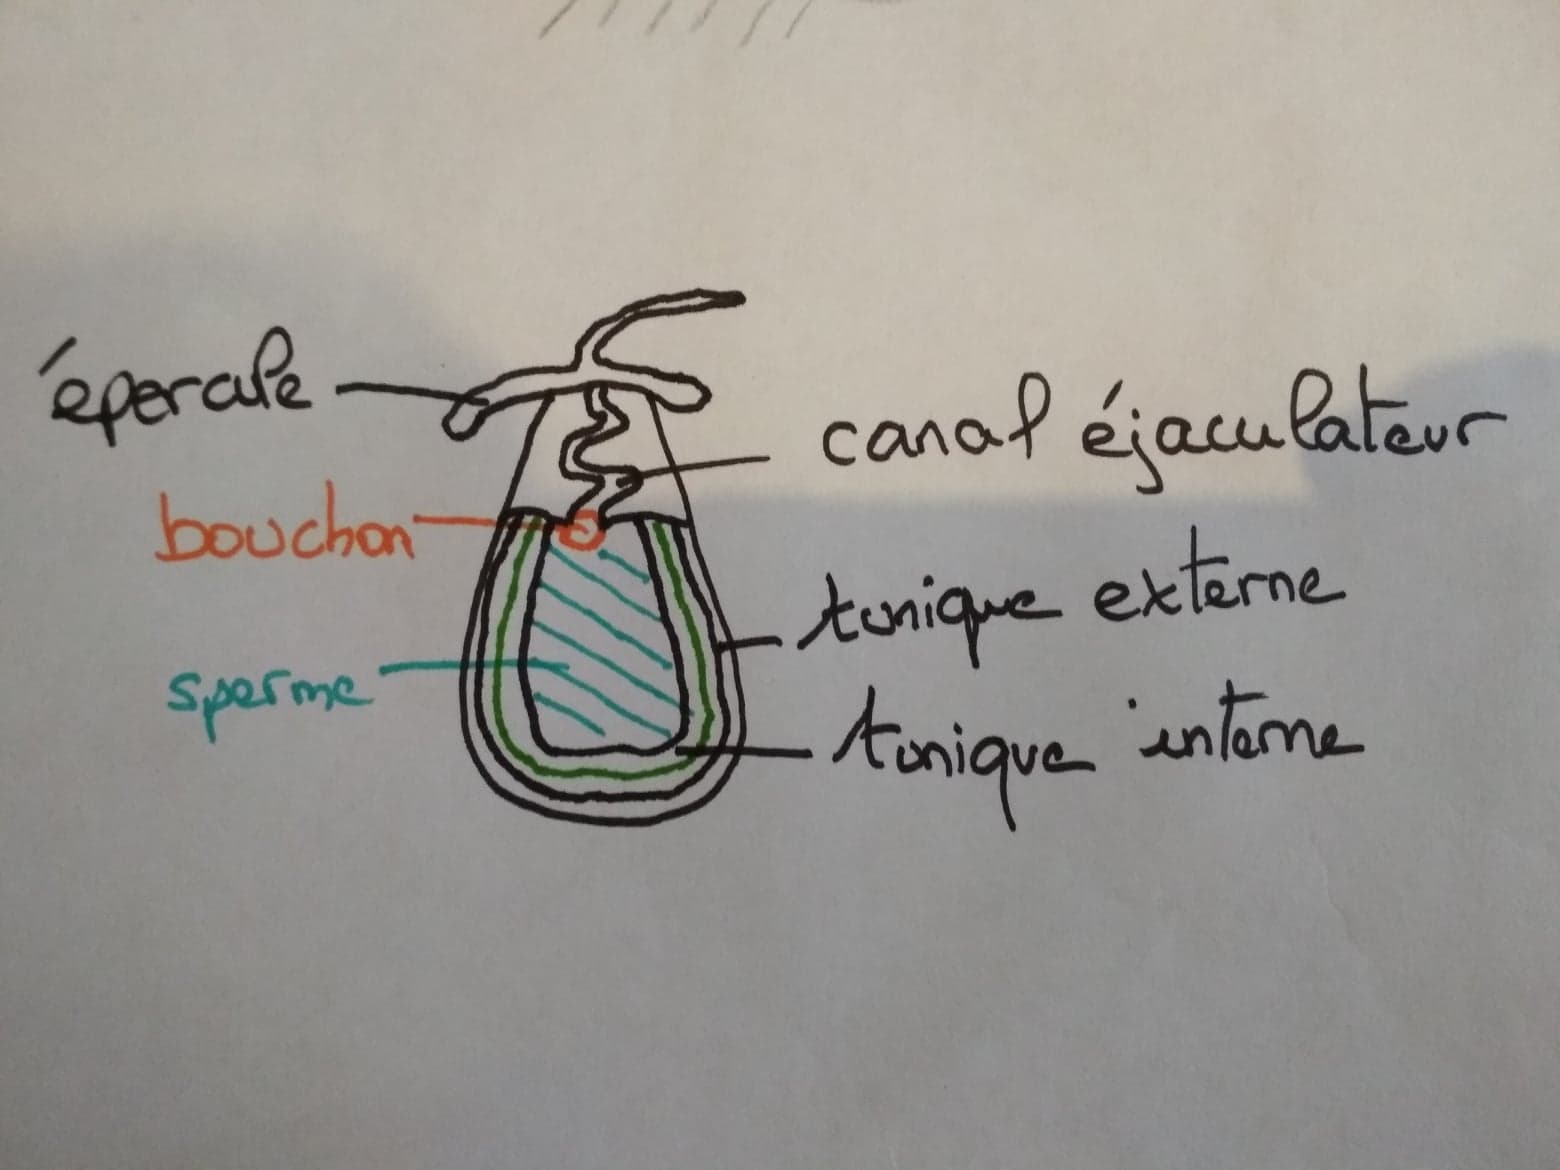 éperale
canal éjaculateur
bouchon
tunique externe
sperme
tunique interne